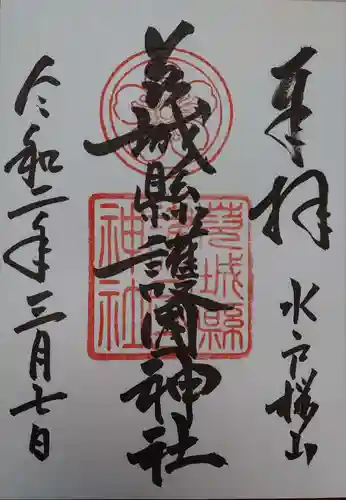 奉拝
水戸桜山
茨城縣護國神社
茨城縣護國神社
令和二年三月七日